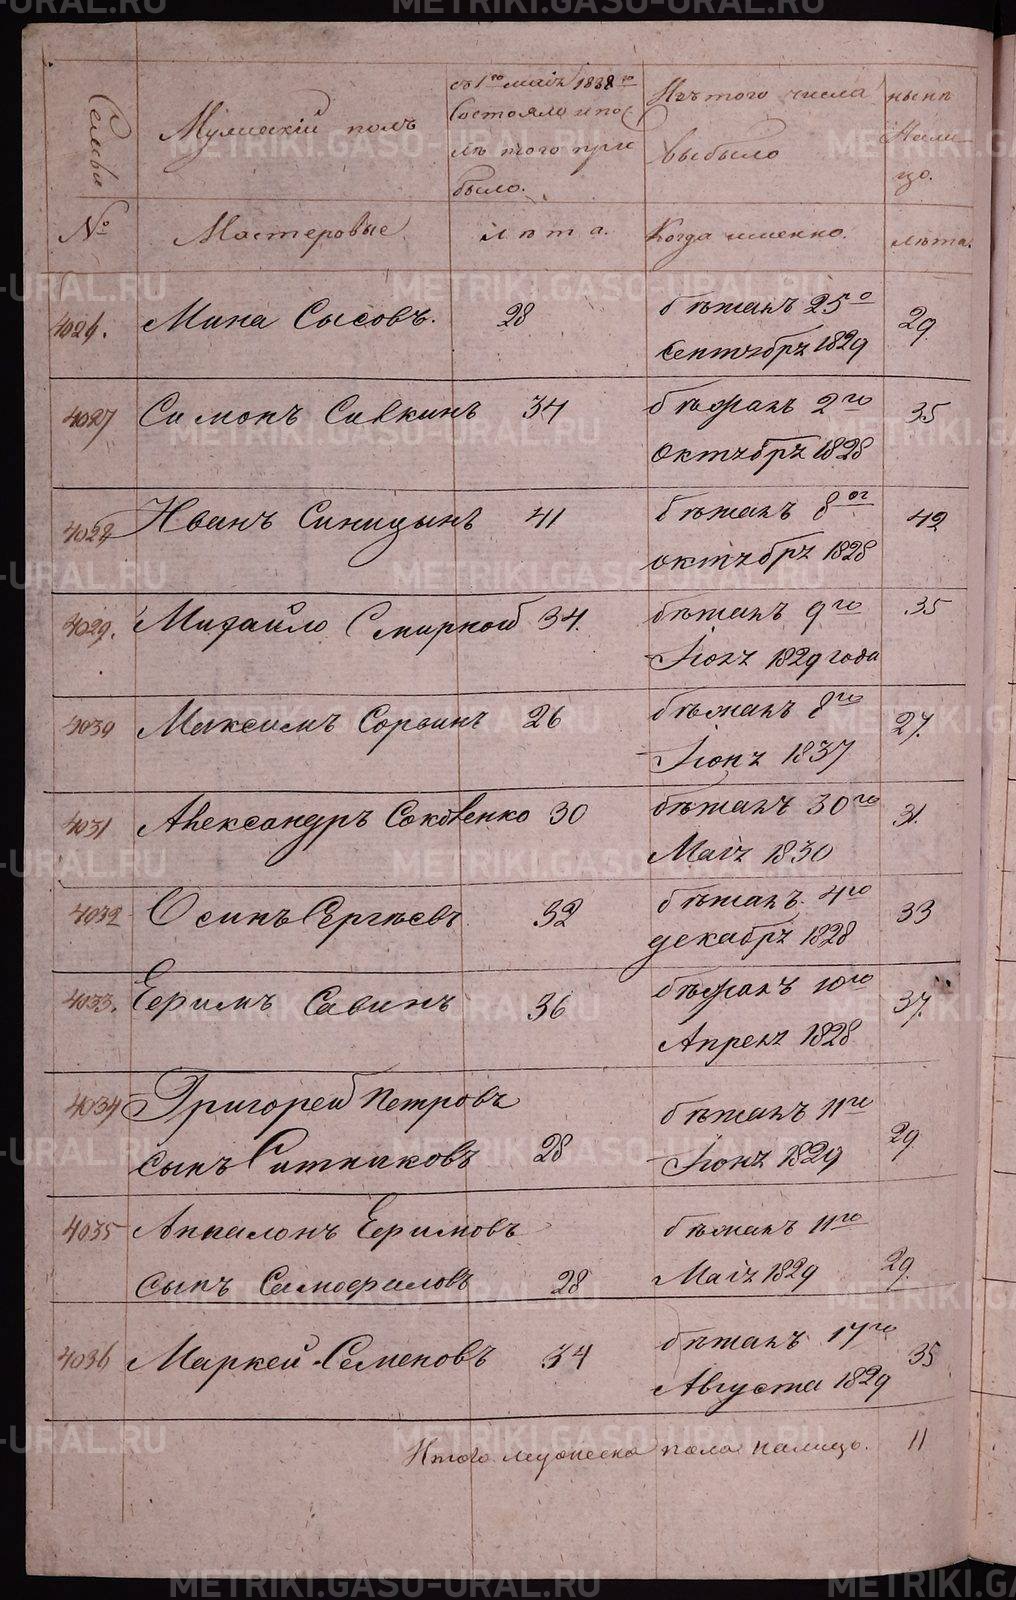 Семьи
Мужескiй полъ
съ 1го маiя 1838го
Состояло и пос
лѣ того при
было.
Изъ того числа
выбыло
нынѣ
Нали
цо.
№
Мастеровые
лѣта.
Когда именно.
лѣта.
4026. Мина Сысовъ. 28 бѣжалъ 25о 29
сентября 1829
4027 Симонъ Савкинъ 34 бѣжалъ 2го 35
октября 1828
4028 Иванъ Синицынъ 41 бѣжалъ 8ог 42
октября 1828
4029. Михайло Смирной 34. бѣжалъ 9го 35
Iюля 1829 года
4030 Максимъ Сорвинъ 26 бѣжалъ 8го 27.
Iюня 1837
4031 Александръ Соковенко 30 бѣжалъ 30го 31.
Маiя 1830
4032 Осипъ Сергѣевъ 32 бѣжалъ 4го 33
декабря 1828
4033. Ефимъ Савинъ 36 бѣжалъ 10го 37.
Апреля 1828
4034 Григорей Петровъ бѣжалъ 11го
сынъ Ситниковъ 28 Iюня 1829 29.
4035 Аппалонъ Ефимовъ бѣжалъ 11го
сынъ Самофаловъ 28 Маiя 1829 29.
4036 Маркей Семеновъ 34 бѣжалъ 17го 35
Августа 1829
Итого мужеска пола налицо. 11
METRIKI.GASO-URAL.RU